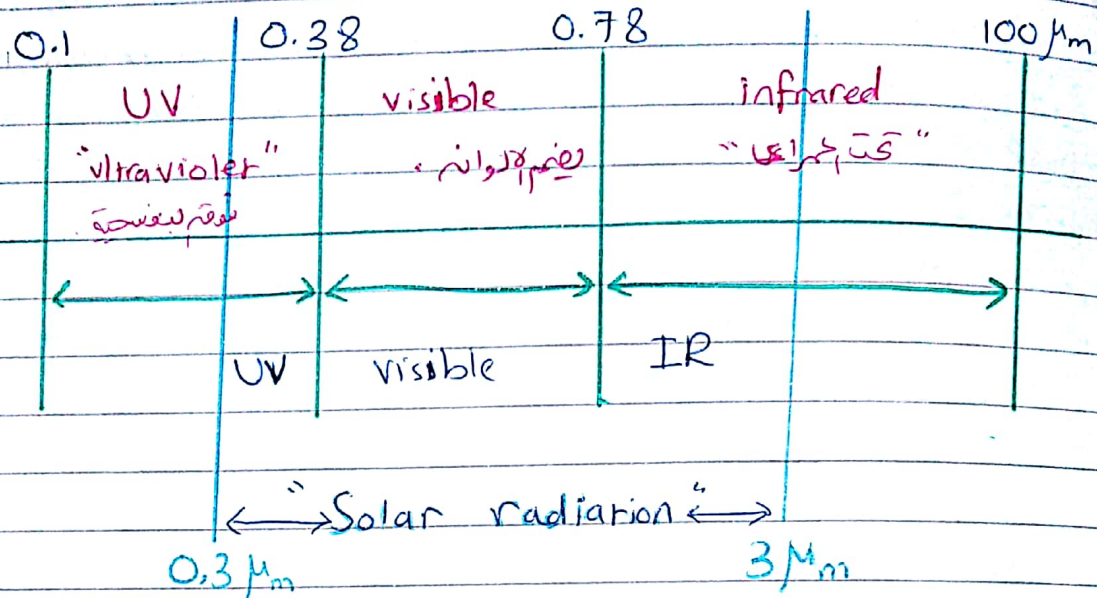 0.1 0.38 0.78 100 μm
UV visible infrared
"ultraviolet" "تحت الحمراء"
فوق بنفسجية
UV visible IR
"Solar radiarion"
0,3 μm 3 μm